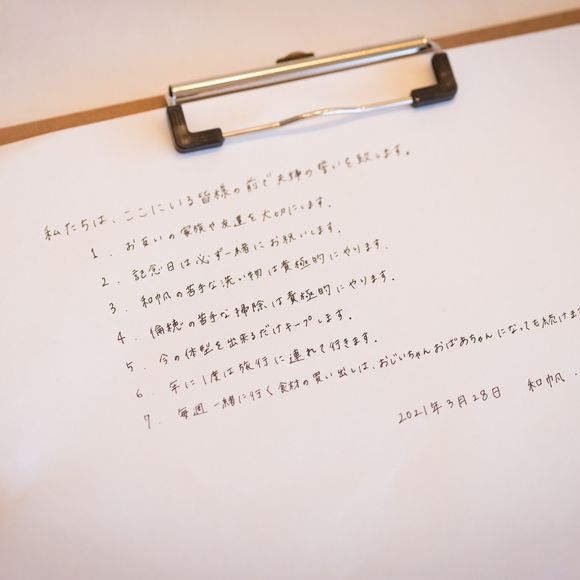 私たちは、ここにいる皆様の前で夫婦の誓いを致します。
1. お互いの家族や友達を大切にします。
2. 記念日は必ず一緒にお祝いします。
3. 和帆の苦手な洗い物は責極的にやります.
4. 倫穂の苦手な掃除は責極的にやります.
5. 今の体型を出来るだけキープします.
6. 年に1度は旅行に連れて行きます.
7. 毎週一緒に行く食材の買い出しは、おじいちゃんおばあちゃんになっても続けます
2021年3月28日 和帆・